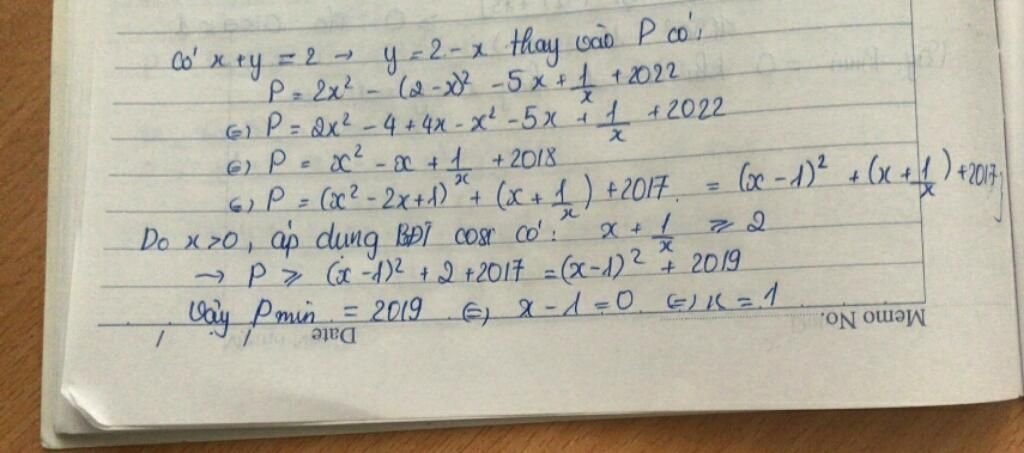 Có x+y = 2 → y = 2 - x thay vào P có:
P = 2x² - (2-x)² - 5x + 1/x + 2022
(=) P = 2x² - 4 + 4x - x² - 5x + 1/x + 2022
(=) P = x² - x + 1/x + 2018
(=) P = (x² - 2x+1) + (x + 1/x) + 2017 = (x - 1)² + (x + 1/x) + 2017
Do x>0, áp dụng BĐT cosi có: x + 1/x ≥ 2
→ P ≥ (x -1)² + 2 + 2017 = (x-1)² + 2019
Vậy Pmin = 2019 (=) x - 1 = 0 (=) x = 1
Memo No.
Date